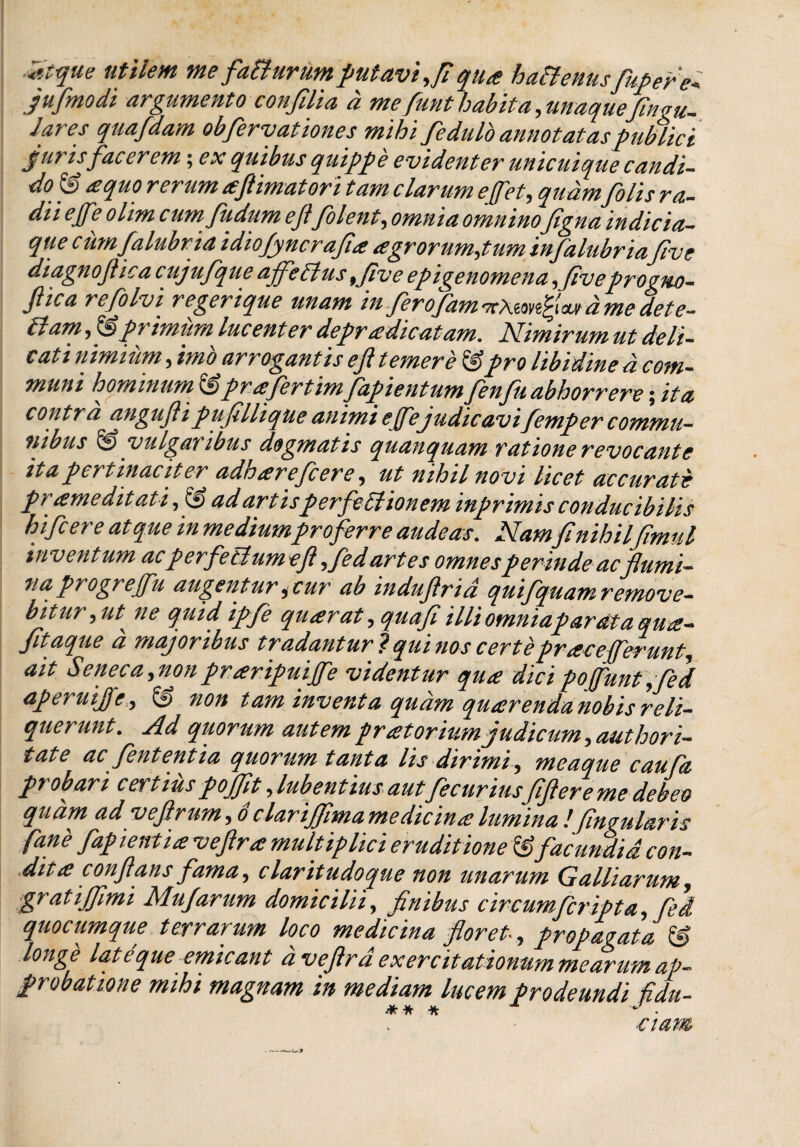 atque utilem me facturum putavi, ſi quæ hactenus ſuper e-
juſmodi argumento conſilia à me ſunt habita, unaque ſingu-
lares quaſdam obſervationes mihi ſedulò annotatas publici
juris facerem; ex quibus quippè evidenter unicuique candi-
do & æquo rerum æſtimatori tam clarum eſſet, quàm ſolis ra-
dii eſſe olim cum ſudum eſt ſolent, omnia omnino ſigna indicia-
que cùm ſalubria idioſyncraſiæ ægrorum, tum inſalubria ſive
diagnoſtica cujuſque affectus, ſive epigenomena, ſive progno-
ſtica reſolvi regerique unam in ſeroſam πλεονεξίαν à me dete-
ctam, & primùm lucenter deprædicatam. Nimirum ut deli-
cati nimiùm, imò arrogantis eſt temerè & pro libidine à com-
muni hominum & præſertim ſapientum ſenſu abhorrere; ita
contrà anguſti puſillique animi eſſe judicavi ſemper commu-
nibus & vulgaribus dogmatis quanquam ratione revocante
ita pertinaciter adhæreſcere, ut nihil novi licet accuratè
præmeditati, & ad artis perfectionem inprimis conducibilis
hiſcere atque in medium proferre audeas. Nam ſi nihil ſimul
inventum ac perfectum eſt, ſed artes omnes perinde ac flumi-
na progreſſu augentur, cur ab induſtriâ quiſquam remove-
bitur, ut ne quid ipſe quærat, quaſi illi omnia parata quæ-
ſitaque à majoribus tradantur? qui nos certè præceſſerunt,
ait Seneca, non præripuiſſe videntur quæ dici poſſunt, ſed
aperuiſſe, & non tam inventa quàm quærenda nobis reli-
querunt. Ad quorum autem prætorium judicum, authori-
tate ac ſententia quorum tanta lis dirimi, meaque cauſa
probari certiùs poſſit, lubentius aut ſecurius ſiſtere me debeo
quàm ad veſtrum, ô clariſſima medicinæ lumina! ſingularis
ſanè ſapientiæ veſtræ multiplici eruditione & facundiâ con-
ditæ conſtans fama, claritudoque non unarum Galliarum,
gratiſſimi Muſarum domicilii, finibus circumſcripta, ſed
quocumque terrarum loco medicina floret, propagata &
longè latéque emicant à veſtrâ exercitationum mearum ap-
probatione mihi magnam in mediam lucem prodeundi fidu-
** *
ciam